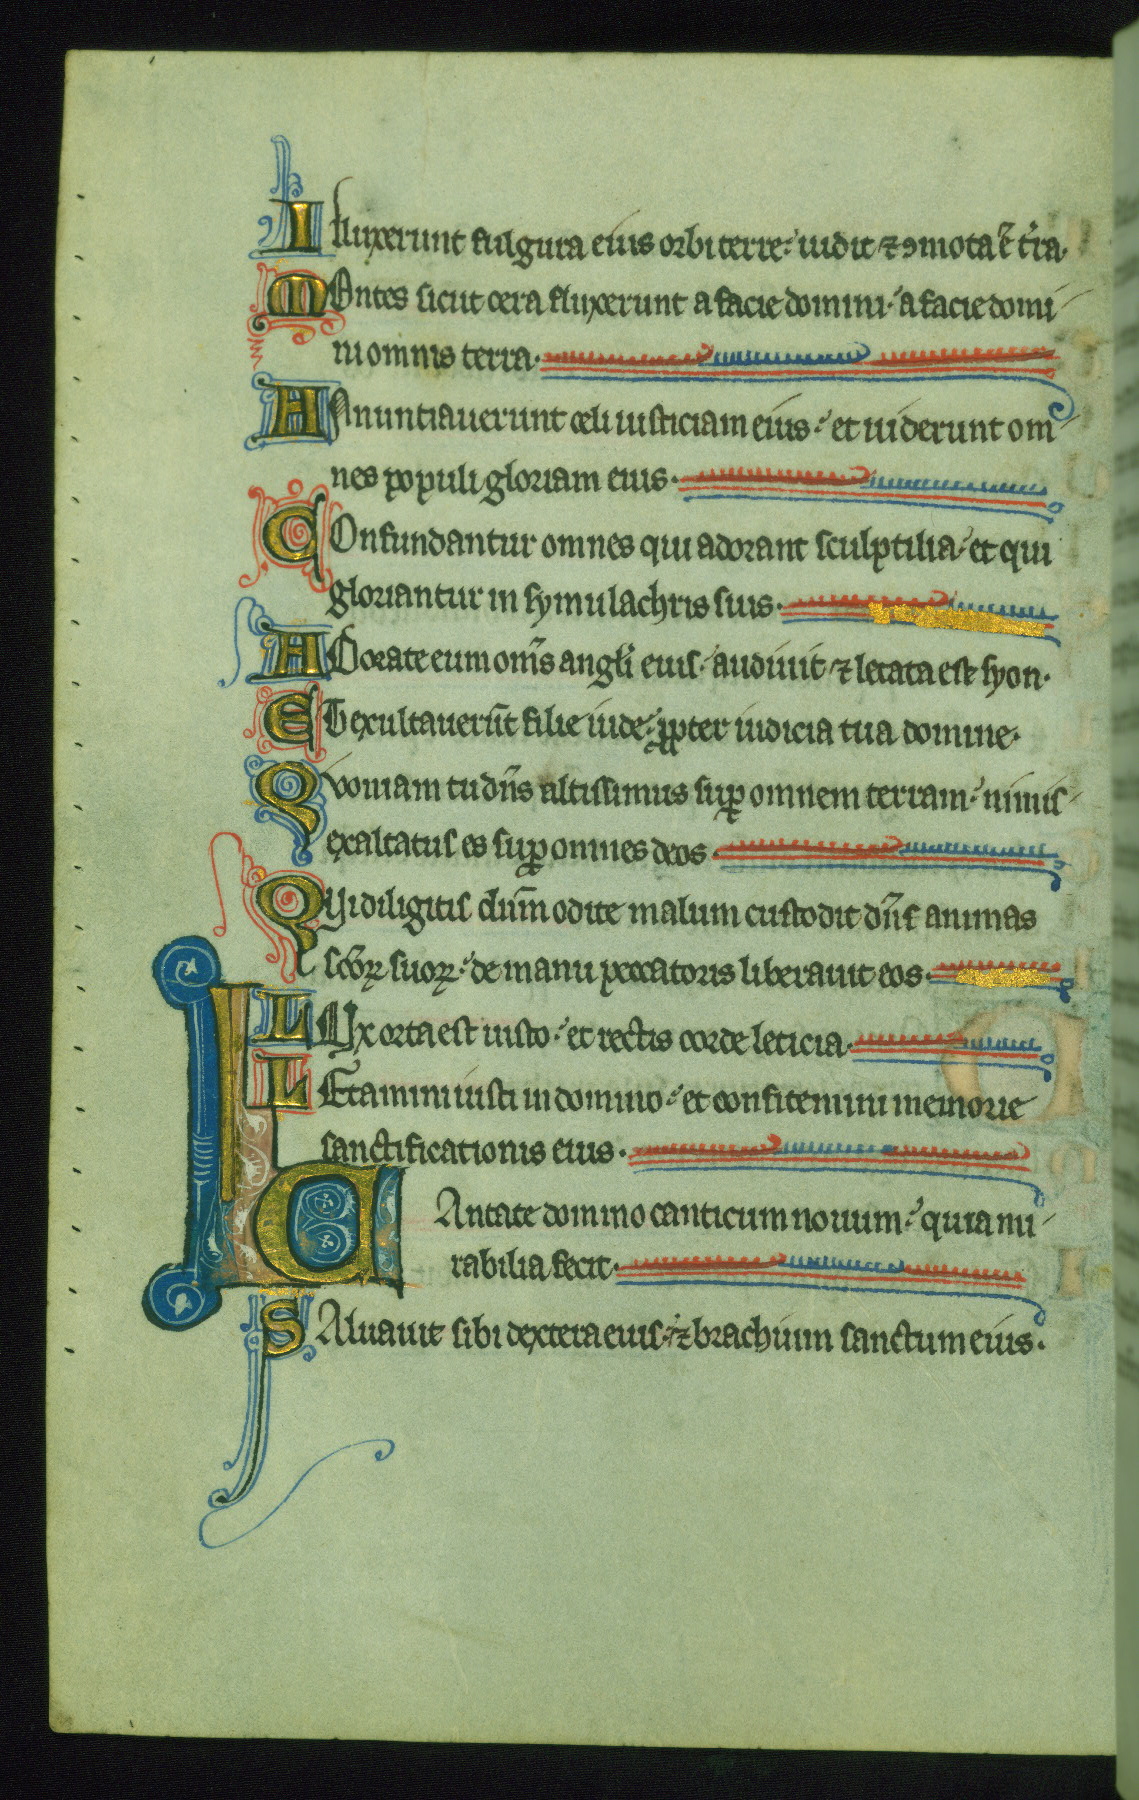 Illuxerunt fulgura eius orbi terre· uidit ⁊ ꝯmota ē t̃ra·
MOntes sicut cera fluxerunt a facie domini· a facie domi
ni omnis terra·
ANnuntiauerunt celi iusticiam eius· et uiderunt om
nes populi gloriam eius·
COnfundantur omnes qui adorant sculptilia· et qui
gloriantur in symulachris suis·
ADorate eum om̃s angl̃i eius· audiuit ⁊ letata est syon·
ET exultauerũt filie iude· ꝓpter iudicia tua domine·
Quoniam tu dñs altissimus suꝑ omnem terram· nimis
exaltatus es suꝑ omnes deos·
QUi diligitis dñm odite malum custodit dñs animas
sc̃oꝝ suoꝝ· de manu peccatoris liberauit eos·
LUx orta est iusto· et rectis corde leticia·
LEtamini iusti in domino· et confitemini memorie
sanctificationis eius·
CAntate domino canticum nouum· quia mi
rabilia fecit·
SAluauit sibi dextera eius· ⁊ brachium sanctum eius·